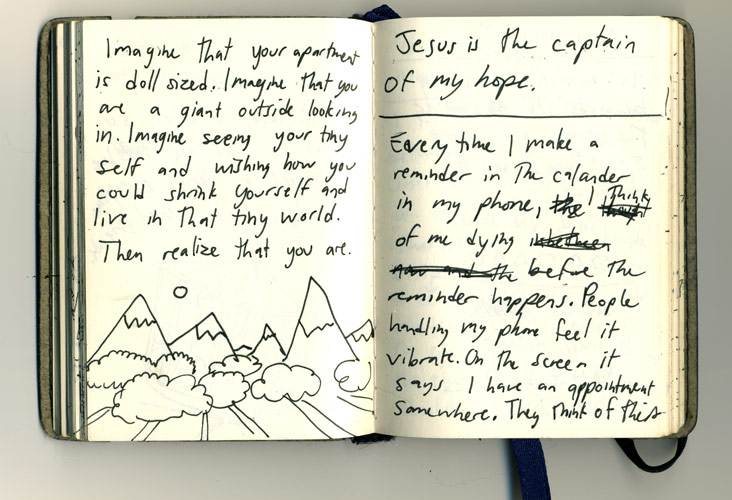 Imagine that your apartment
is doll sized. Imagine that you
are a giant outside looking
in. Imagine seeing your tiny
self and wishing how you
could shrink yourself and
live in that tiny world.
Then realize that you are.
Jesus is the captain
of my hope.
Every time I make a
reminder in the calander
in my phone, the I think
of me dying inbetween
now and the before the
reminder happens. People
handling my phone feel it
vibrate. On the screen it
says I have an appointment
somewhere. They think of this